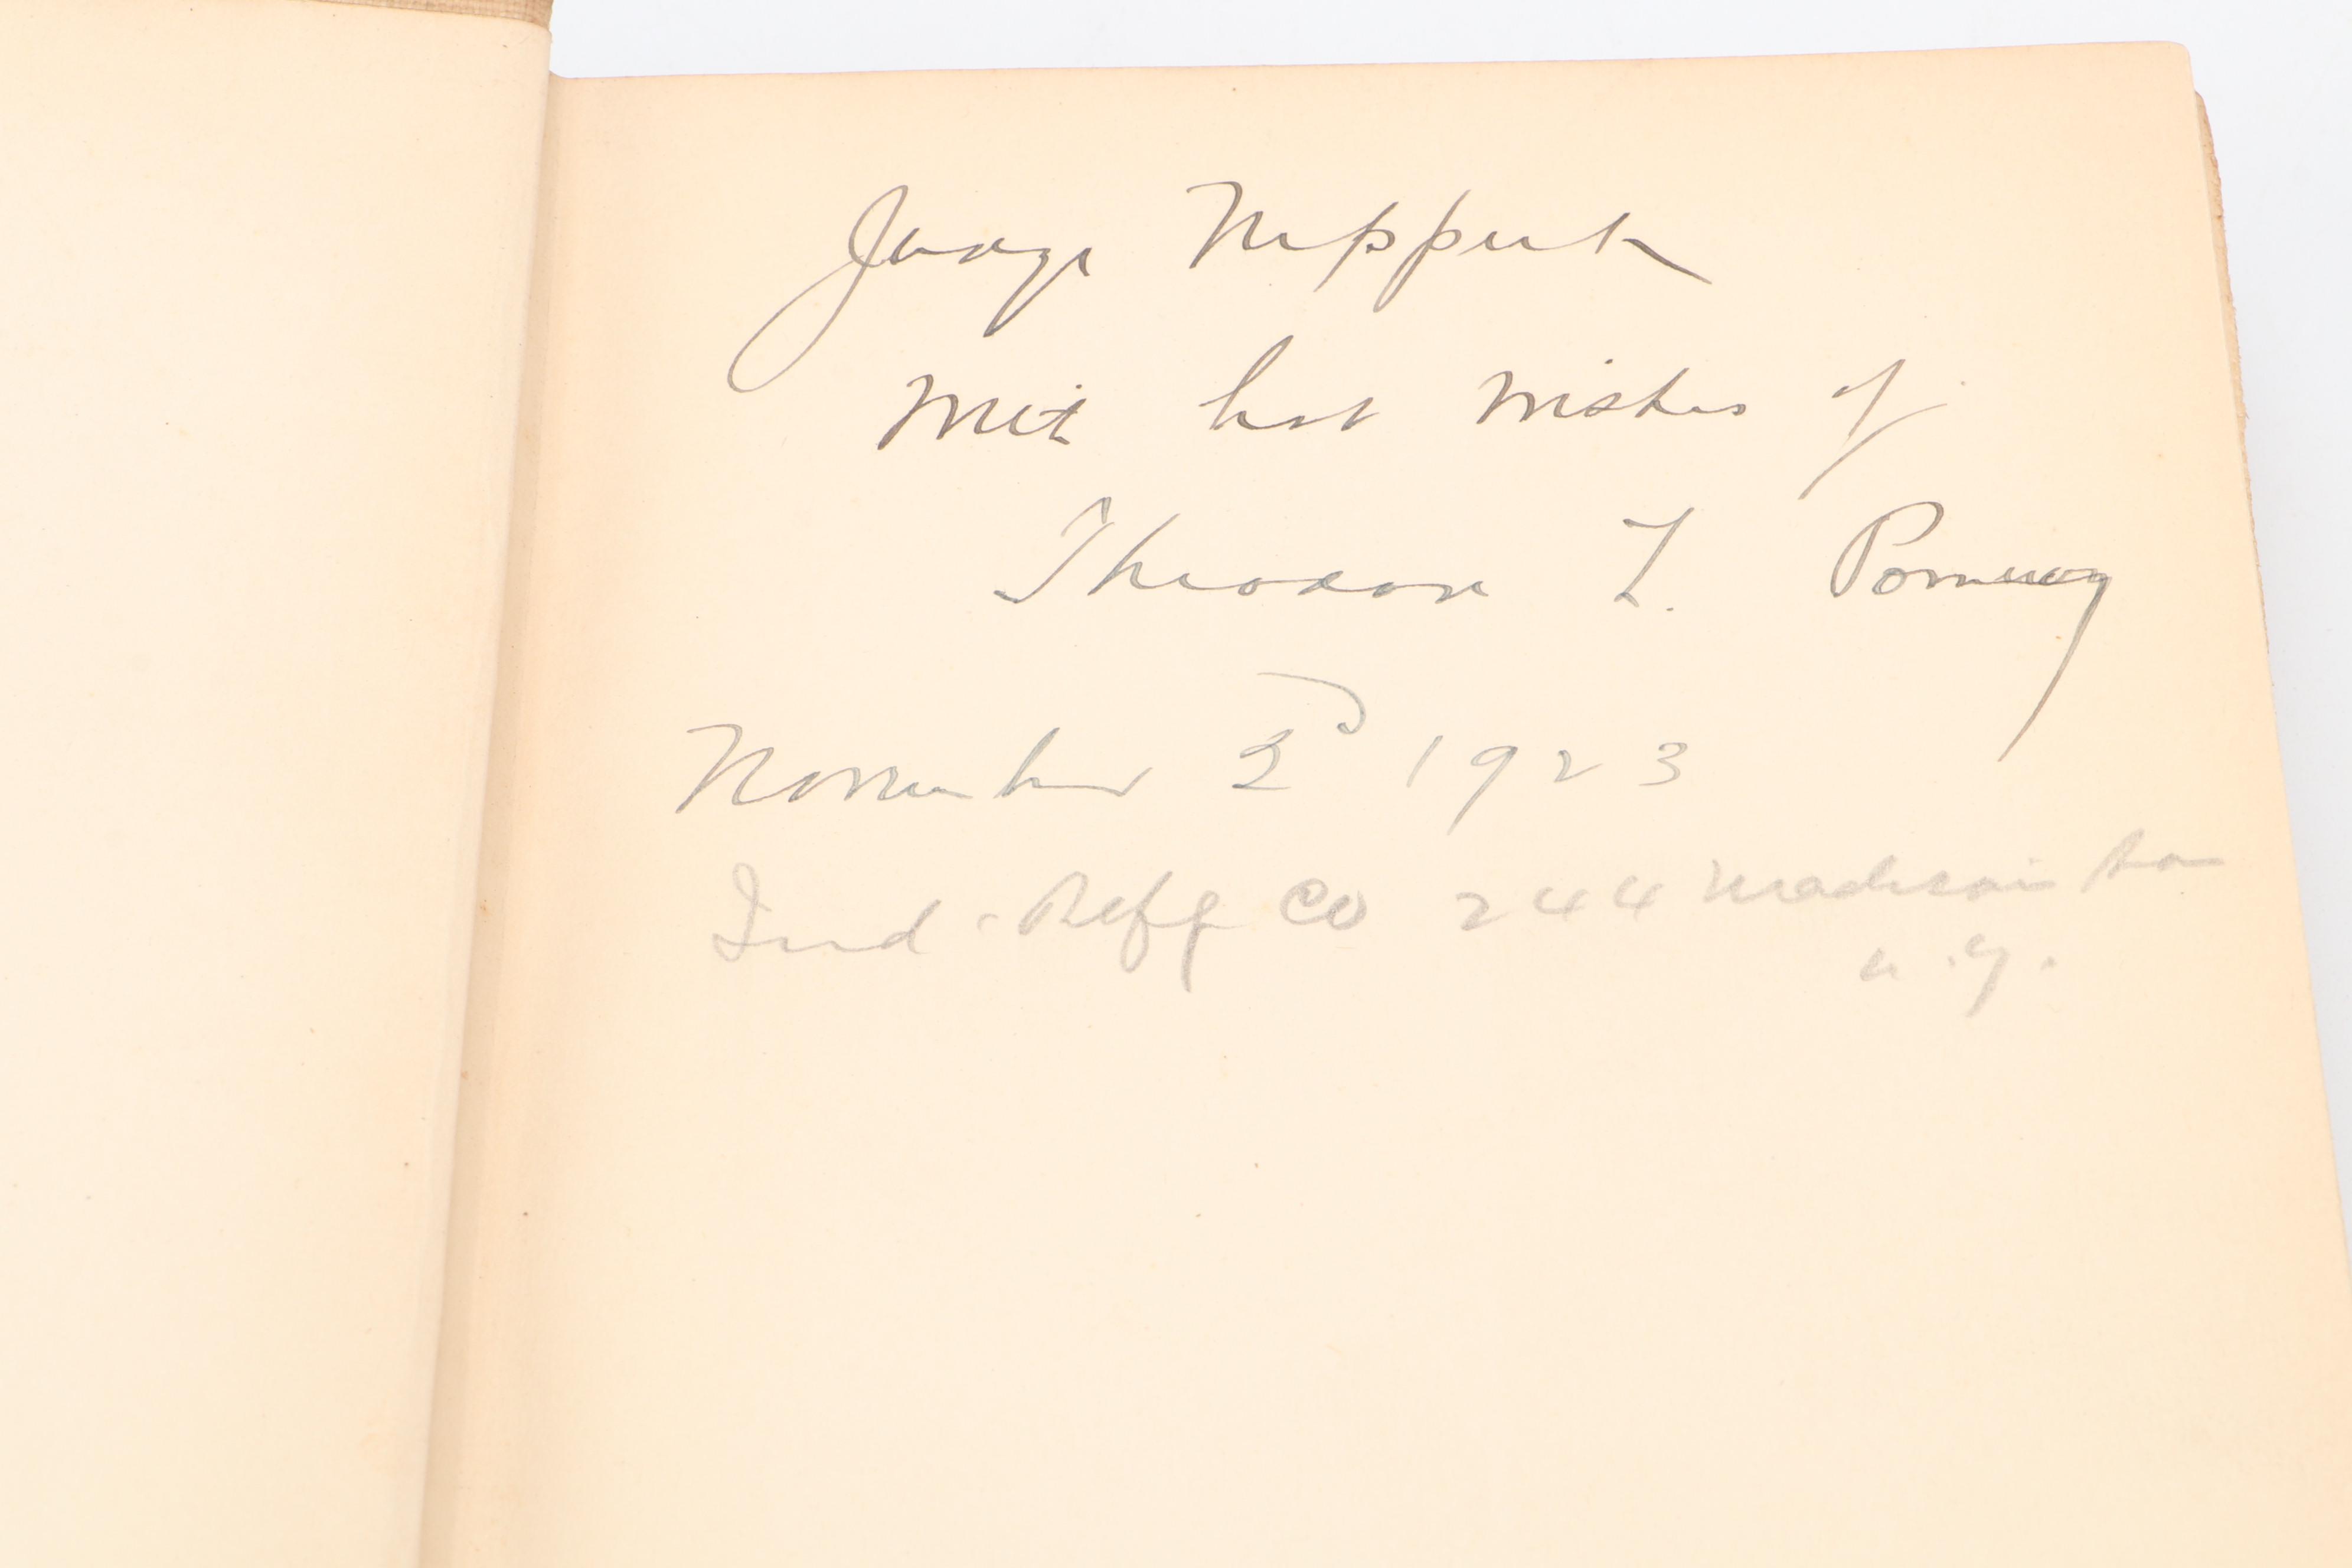 Judge Nippert
With best wishes of
Theodore L. Pomeroy
November 2d 1923
Ind. Refg Co 244 Madison Av
N.Y.